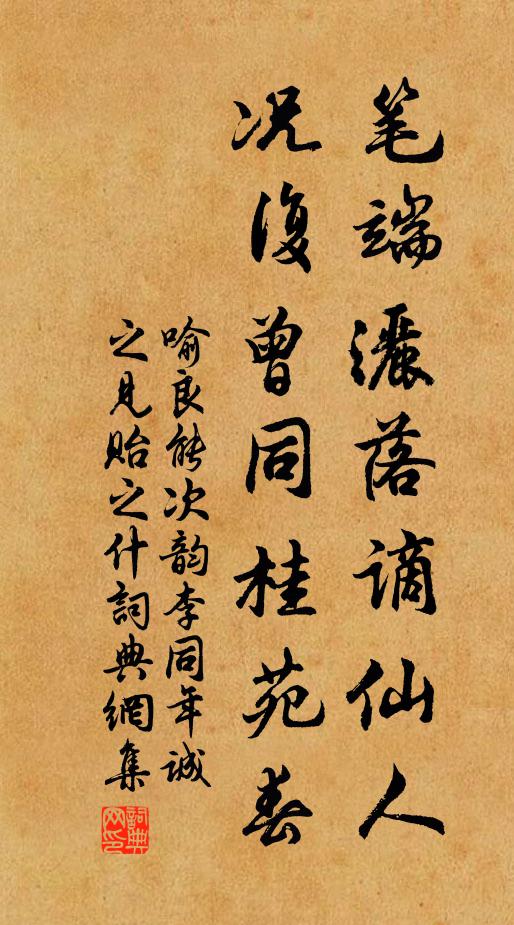 笔端灑落谪仙人
况復曾同桂苑春
喻良能次韵李同年诚
之見贻之什詞典網集
詞典网印